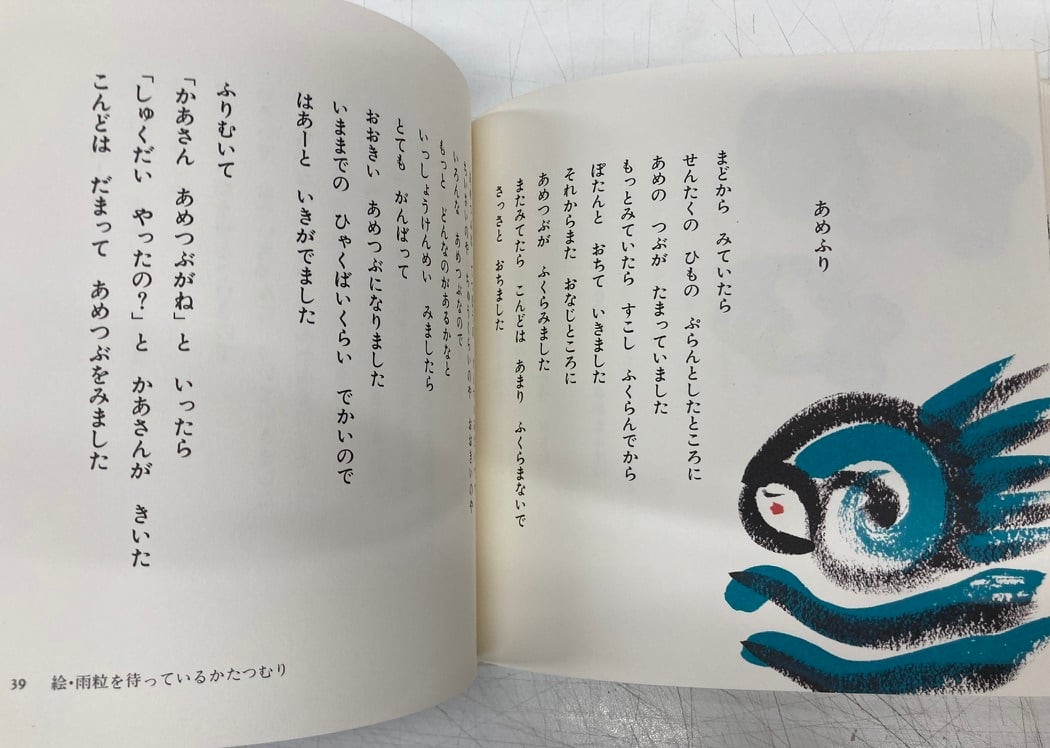 あめふり
まどから　みていたら
せんたくの　ひもの　ぷらんとしたところに
あめの　つぶが　たまっていました
もっとみていたら　すこし　ふくらんでから
ぽたんと　おちて　いきました
それからまた　おなじところに
あめつぶが　ふくらみました
またみてたら　こんどは　あまり　ふくらまないで
さっさと　おちました
ちいさいのや　ちゅうくらいのや　おおきいのや
いろんな　あめつぶなので
もっと　どんなのがあるかなと
いっしょうけんめい　みましたら
とても　がんばって
おおきい　あめつぶになりました
いままでの　ひゃくばいくらい　でかいので
はあーと　いきがでました
ふりむいて
「かあさん　あめつぶがね」と　いったら
「しゅくだい　やったの？」と　かあさんが　きいた
こんどは　だまって　あめつぶをみました
39　絵・雨粒を待っているかたつむり